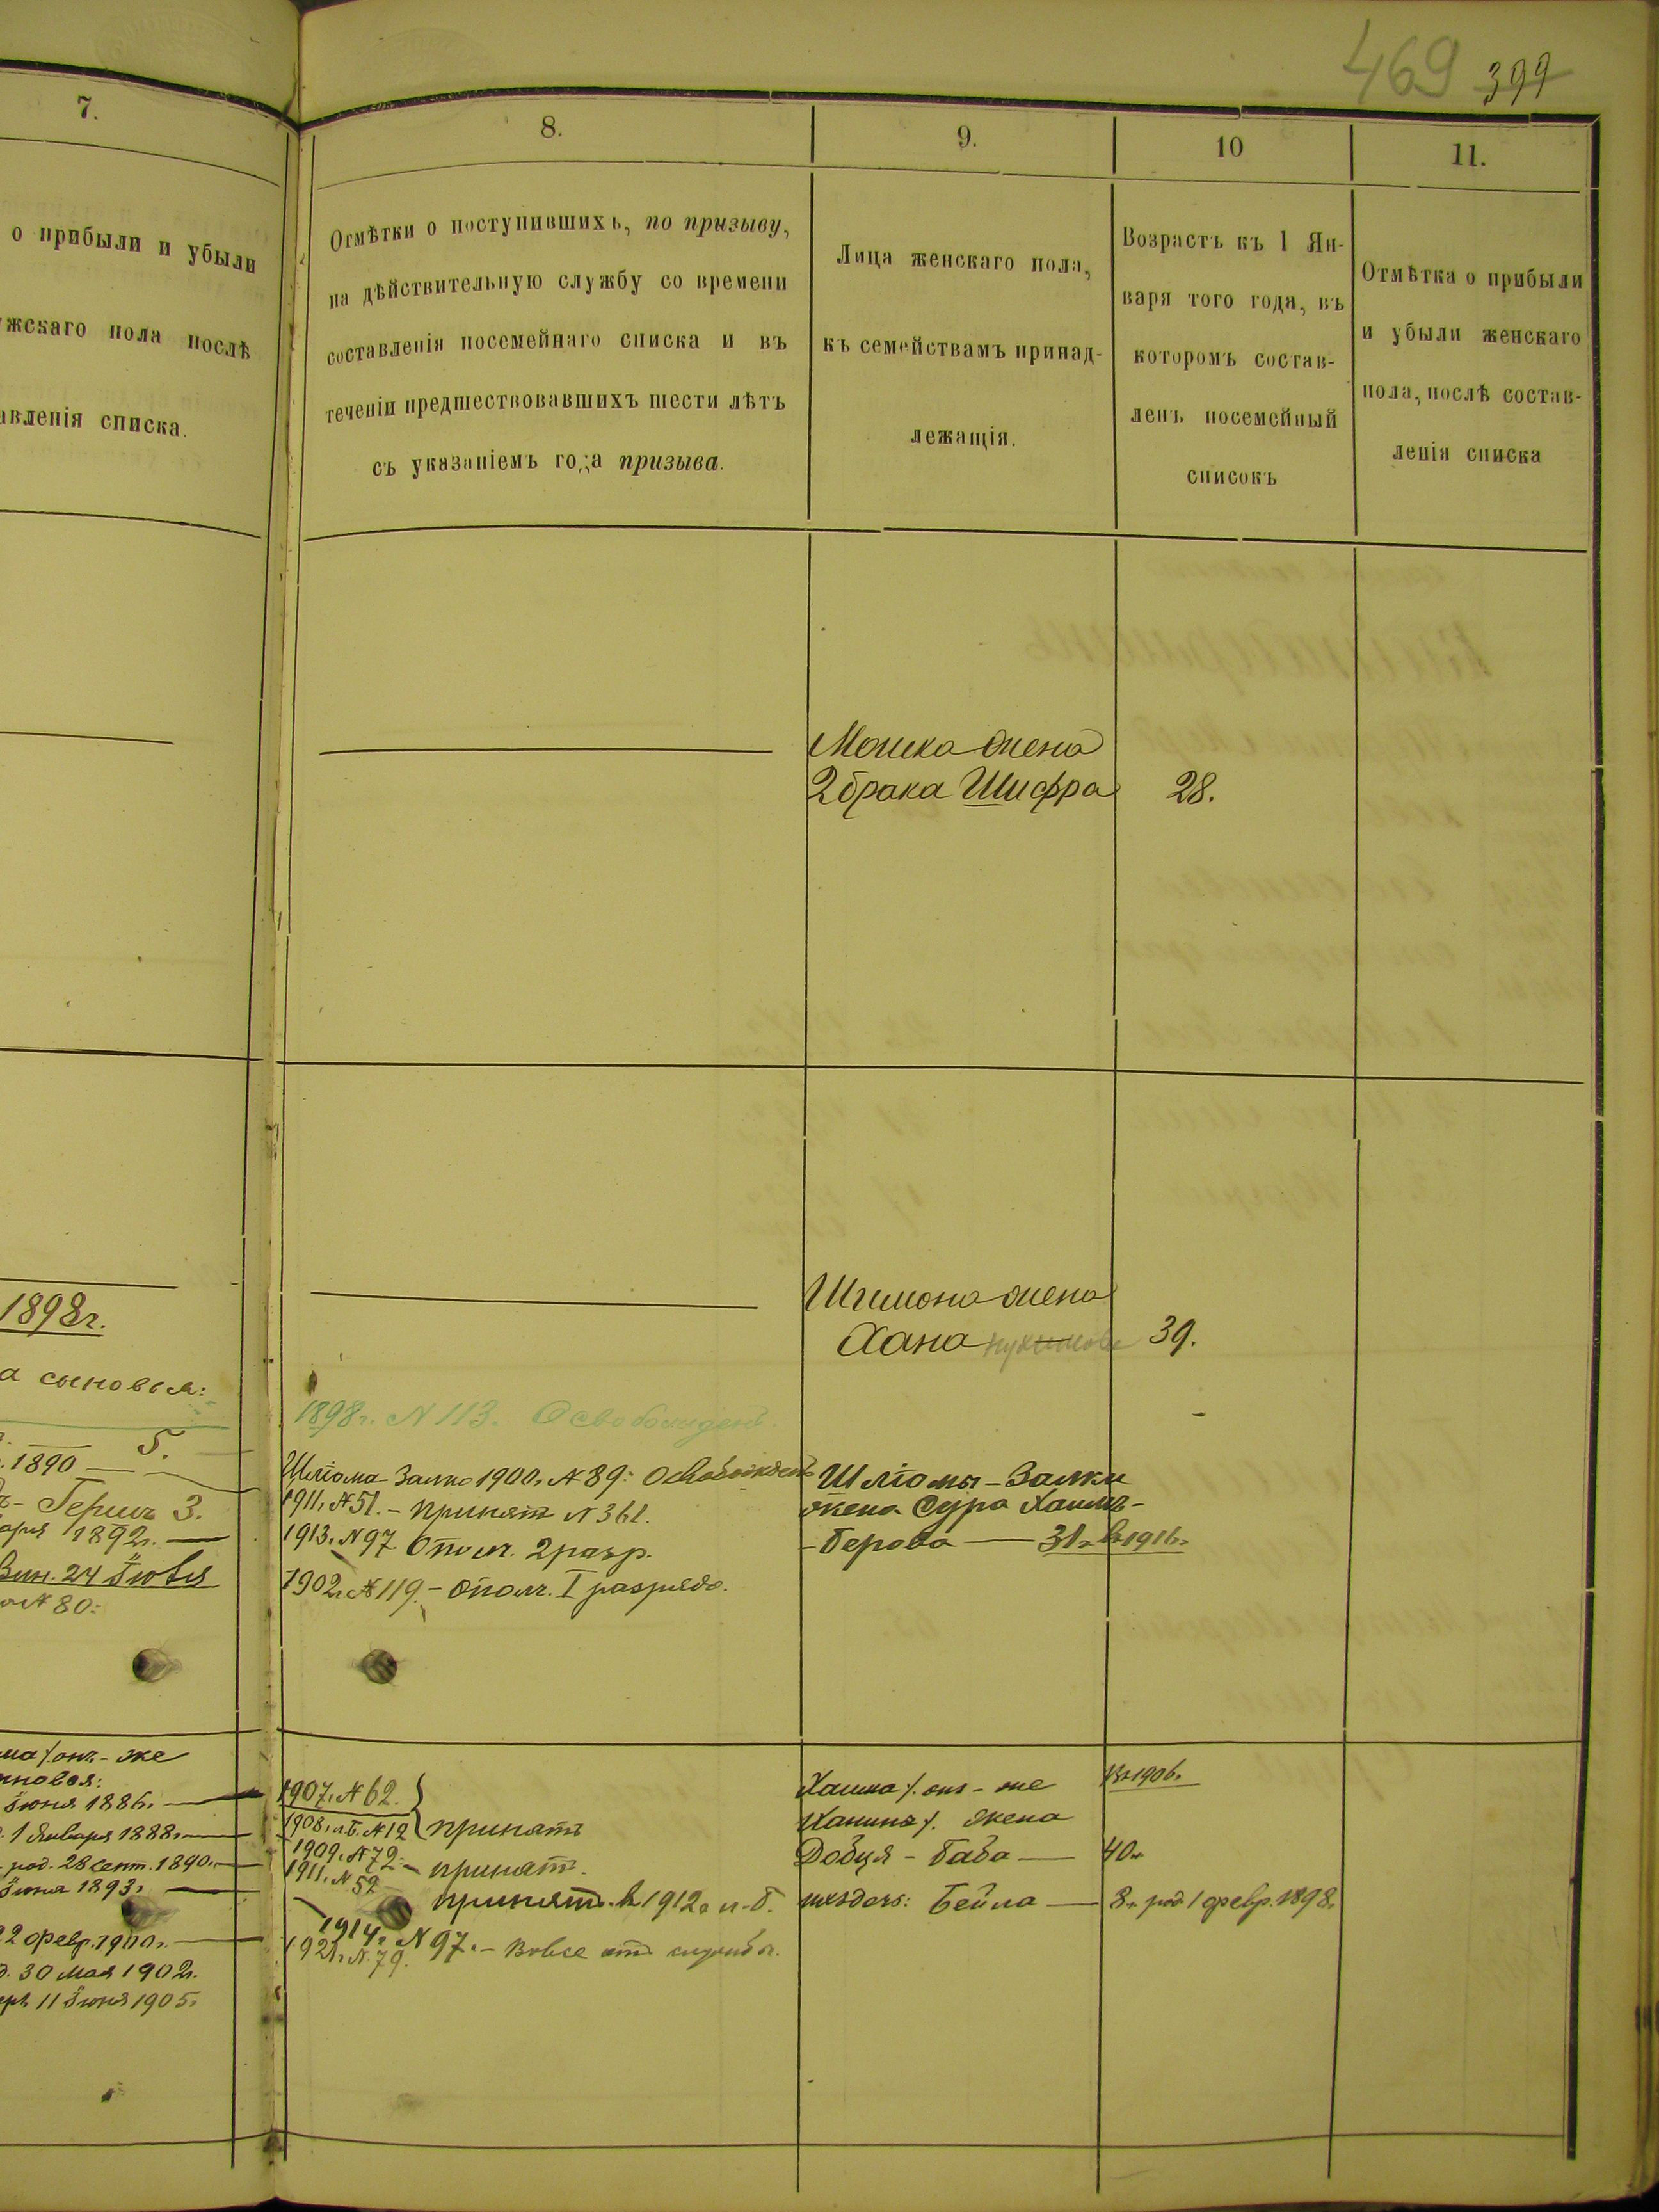 469 399
7.
о прибыли и убыли
жскаго пола послѣ
авленія списка.
1898г.
а сыновья:
5.
1890
Гершъ 3.
1892г.
24 Іюля
№ 80:
онъ-же
Іюня 1886г.
1 Января 1888г.
род. 28 сент. 1890г.
1893г.
22 февр. 1900г.
30 Мая 1902г.
11 Іюня 1905г.
8.
Отмѣтки о поступившихъ, по призыву,
на дѣйствительную службу со времени
составленія посемейнаго списка и въ
теченіи предшествовавшихъ шести лѣтъ
съ указаніемъ года призыва.
1898г. № 113. Освобожденъ.
Шліома-Залко 1900г. № 89: Освобожденъ
1911г. № 51. - принятъ № 361.
1913г. № 97 Ополч. 2 разр.
1902г. № 119. - Ополч. I разряда.
1907г. № 62.
1908г. п.б. № 12 принятъ
1909г. № 72 - принятъ.
1911г. № 52
принятъ. въ 1912г. п-б.
1914г. № 97. - Вовсе отъ службы.
1921г. № 79.
9.
Лица женскаго пола,
къ семействамъ принад-
лежащія.
Мошка жена
2 брака Шифра
Шимона жена
Хана
Шліомы-Залки
жена Сура Хаимъ-
-Берова — 31г. въ 1916г.
Хаима /. онъ-же
Ханина /. жена
Добця - Баба —
ихъ дочь: Бейла —
10
Возрастъ къ 1 Ян-
варя того года, въ
которомъ состав-
ленъ посемейный
списокъ
28.
39.
Въ 1906г.
40г.
8г. род. 1 февр. 1898г.
11.
Отмѣтка о прибыли
и убыли женскаго
пола, послѣ состав-
ленія списка